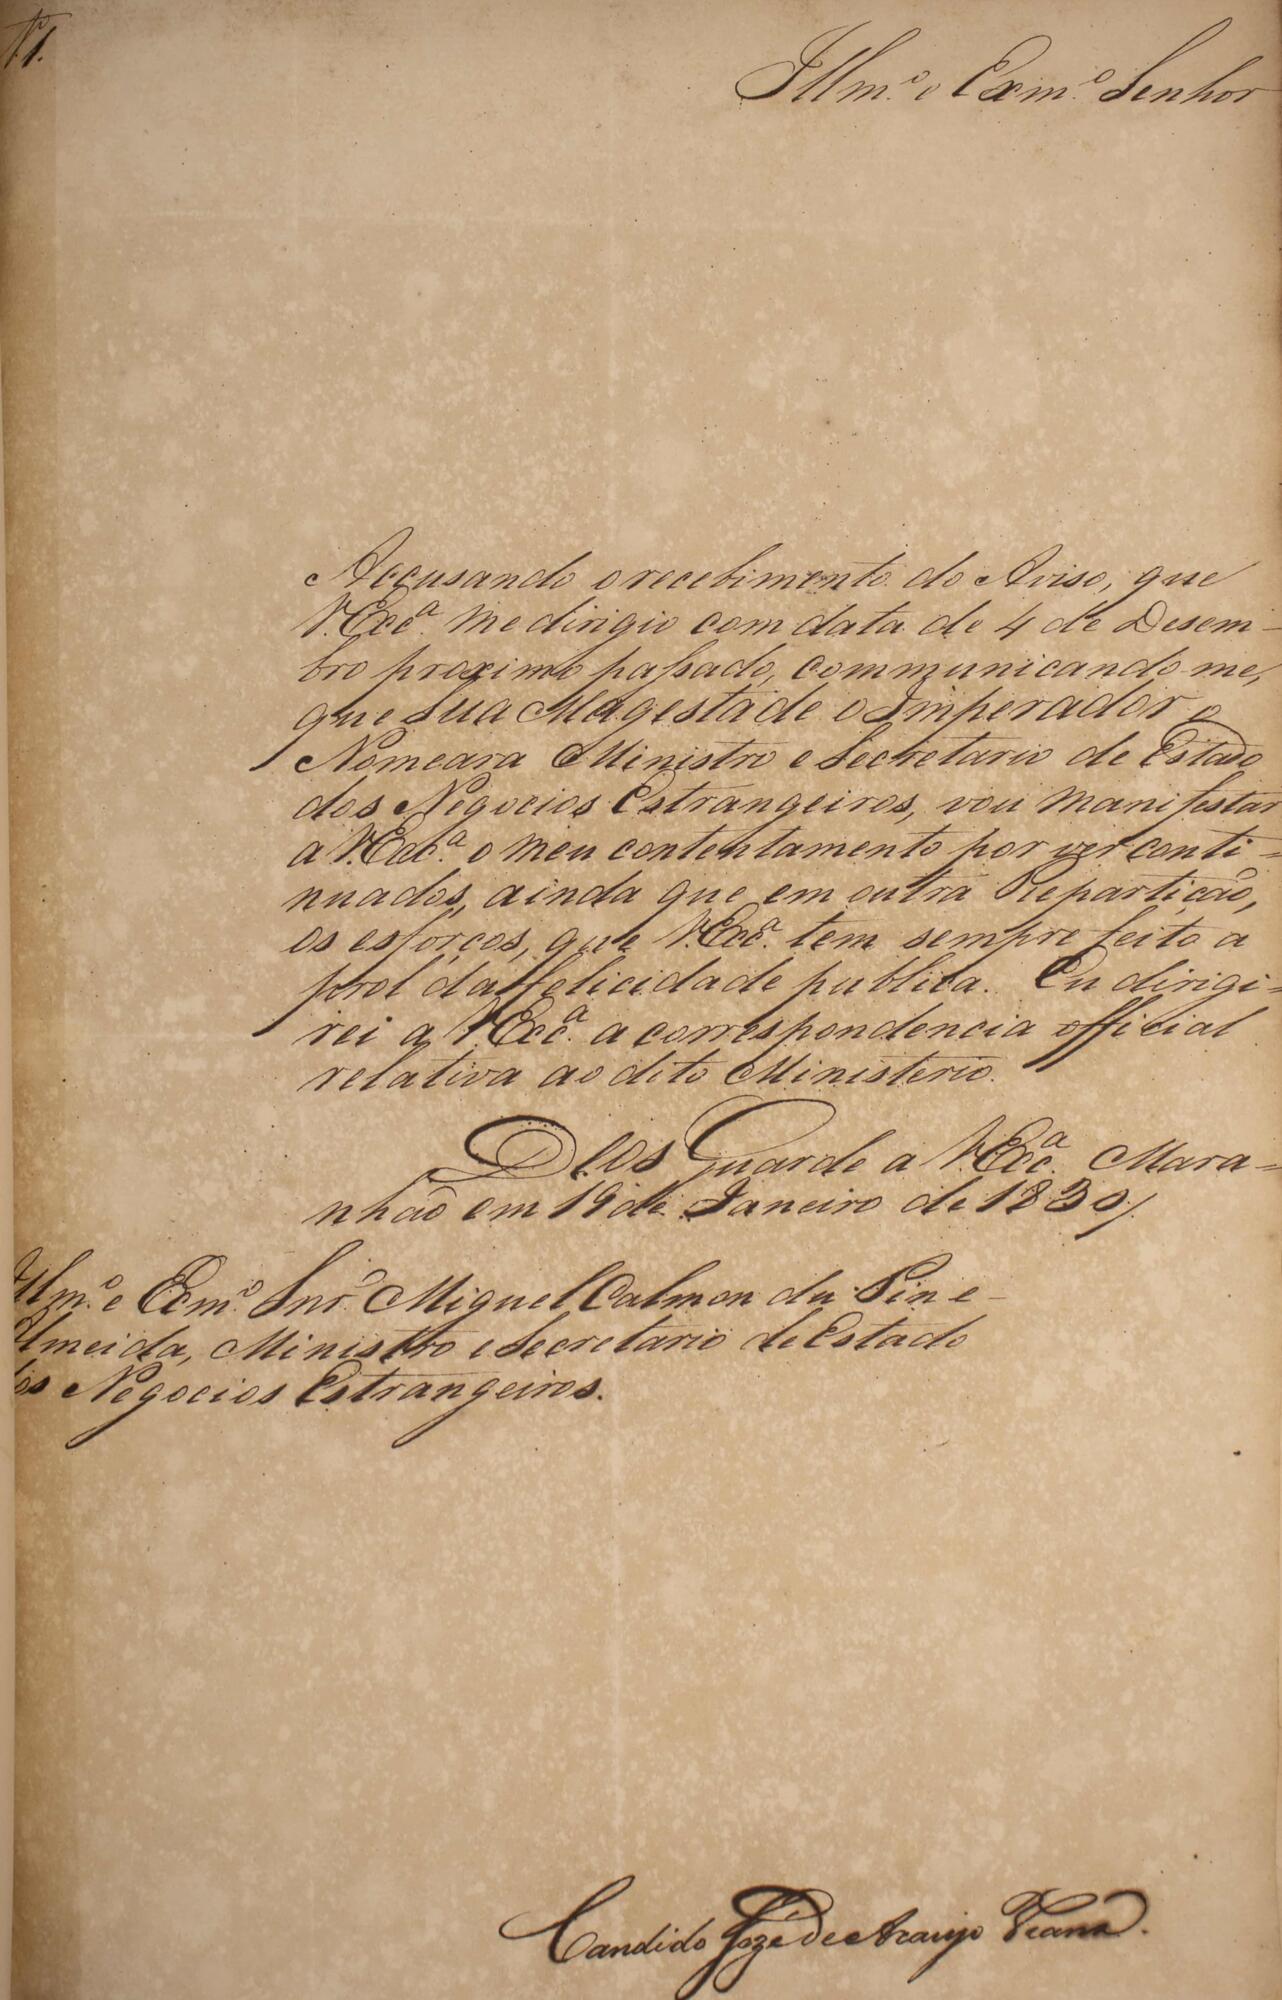 N.º 1.
Illm.º e Exm.º Senhor
Accusando o recebimento do Aviso, que
V. Exc.ª me dirigio com data de 4 de Desem-
bro proximo passado, communicando-me,
que Sua Magestade o Imperador o
Nomeara Ministro e Secretario de Estado
dos Negocios Estrangeiros, vou manifestar
a V. Exc.ª o meu contentamento por ver conti=
nuados, ainda que em outra Repartição,
os esforços, que V. Exc.ª tem sempre feito a
prol da felicidade publica. Eu dirigi-
rei a V. Exc.ª a correspondencia official
relativa ao dito Ministerio.
Deos Guarde a V. Exc.ª Mara=
nhão em 19 de Janeiro de 1830/
Illm.º e Exm.º Snr.º Miguel Calmon du Pin e
Almeida, Ministro e Secretario de Estado
dos Negocios Estrangeiros.
Candido José de Araujo Vianna.